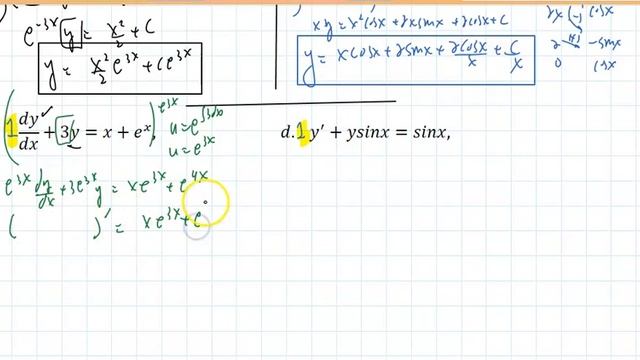 e^{-3x} y = x²/2 + C
y = x²/2 e^{3x} + Ce^{3x}
xy = x²cosx + 2xsinx + 2cosx + C
y = xcosx + 2sinx + 2cosx/x + C/x
2x (-) cosx
2 (+) -sinx
0 cosx
(1 dy/dx + 3y = x + e^x,) e^{3x}
u = e^{∫3dx}
u = e^{3x}
e^{3x} dy/dx + 3e^{3x} y = xe^{3x} + e^{4x}
( )' = xe^{3x} + e
d. 1 y′ + ysinx = sinx,